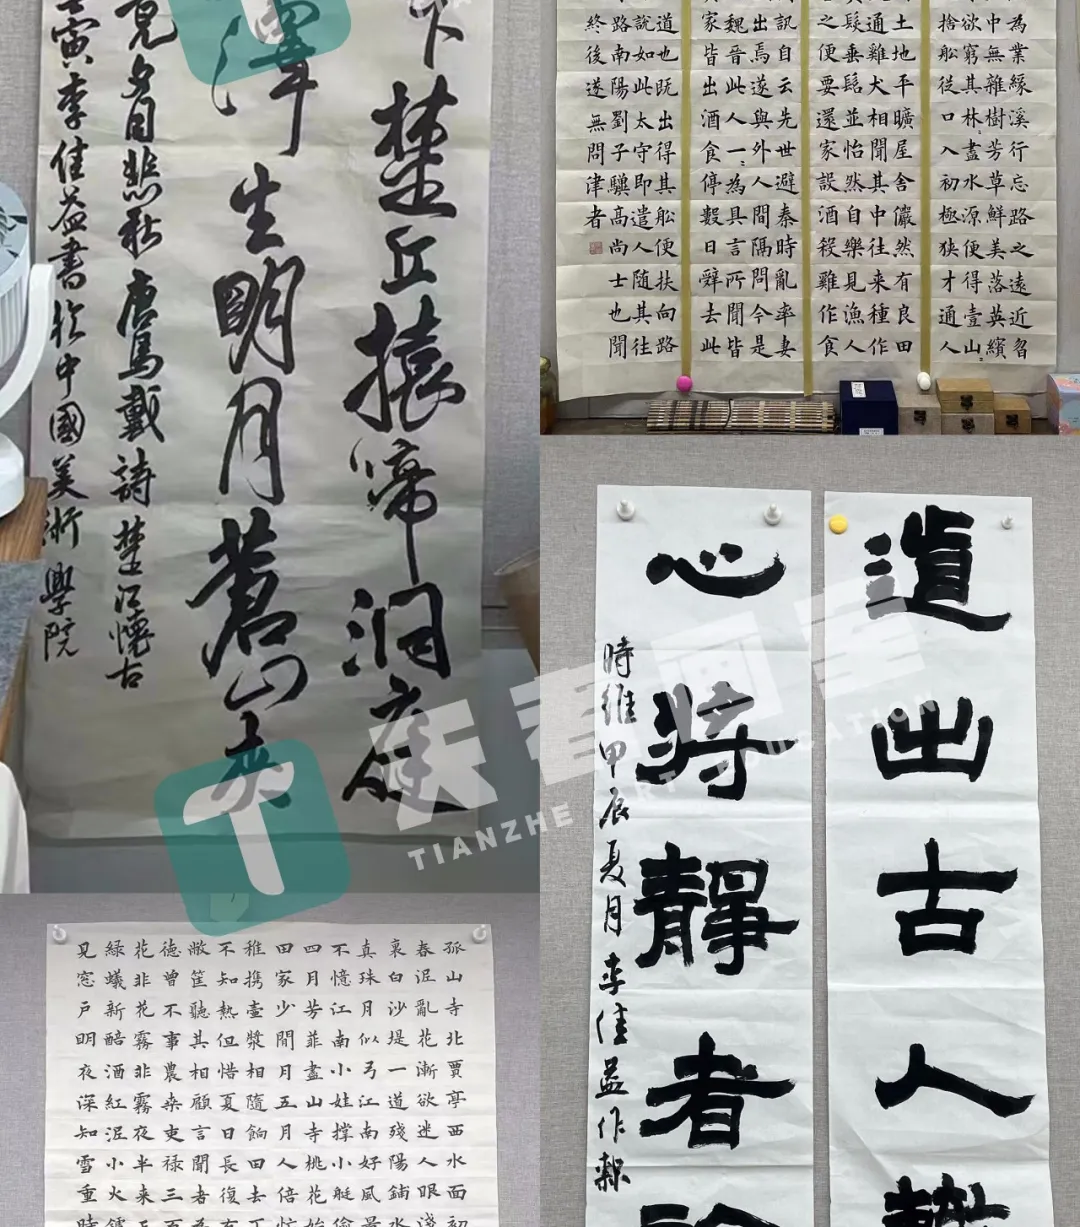 下楚丘猿啼洞庭
澤生明月蒼山夾
竟夕自悲秋 唐馬戴詩 楚江懷古
寅李佳益書於中國美術學院
為業緣溪行忘路之遠近忽
中無雜樹芳草鮮美落英繽
欲窮其林〻盡水源便得壹山〻
捨舩從口入初極狹才通人
土地平曠屋舍儼然有良田
通雞犬相聞其中往来種作
髮垂髫並怡然自樂見漁人
之便要還家設酒殺雞作食
訊自云先世避秦時亂率妻
出焉遂與外人間隔問今是
魏晉此人一〻為具言所聞皆
家皆出酒食停數日辭去此
道也既出得其舩便扶向路
說如此太守即遣人随其往
路南陽劉子驥高尚士也聞
終後遂無問津者
孤山寺北賈亭西水面初
春泥亂花漸欲迷人眼淺
裏白沙堤一道殘陽鋪水
真珠月似弓江南好風景
不憶江南小娃撐小艇偷
四月芳菲盡山寺桃花始
田家少閒月五月人倍忙
稚携壺漿相隨餉田去丁
不知熱但惜夏日長復有
敝筐聽其相顧言聞者為
德曾不事農桒吏禄三百
花非花霧非霧夜半来天
緑蟻新醅酒紅泥小火鑪
見窓戶明夜深知雪重時
道出古人轍
心將靜者論
時維甲辰夏月李佳益作隸
T
TIANZHE ART EDUCATION